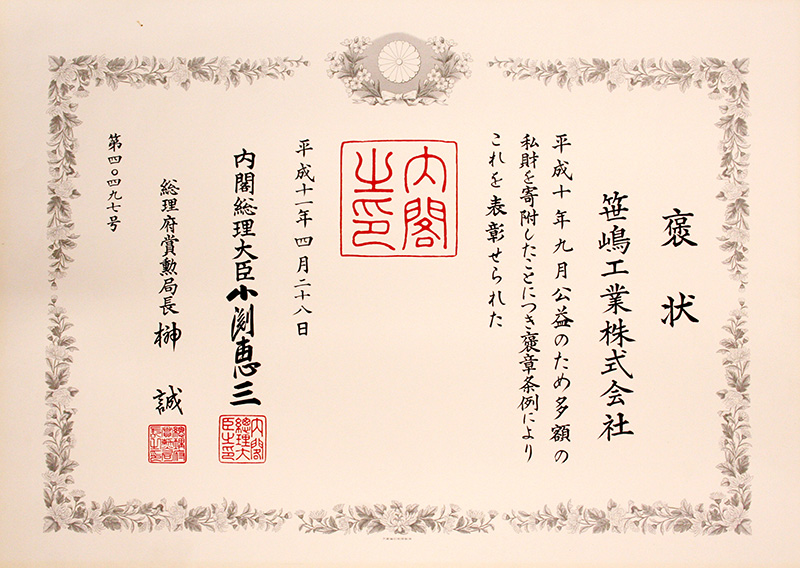 褒状
笹嶋工業株式会社
平成十年九月公益のため多額の
私財を寄附したことにつき褒章条例により
これを表彰せられた
内閣
之印
平成十一年四月二十八日
内閣総理大臣 小渕恵三
内閣
總理大
臣之印
総理府賞勲局長 榊 誠
第四〇四九七号